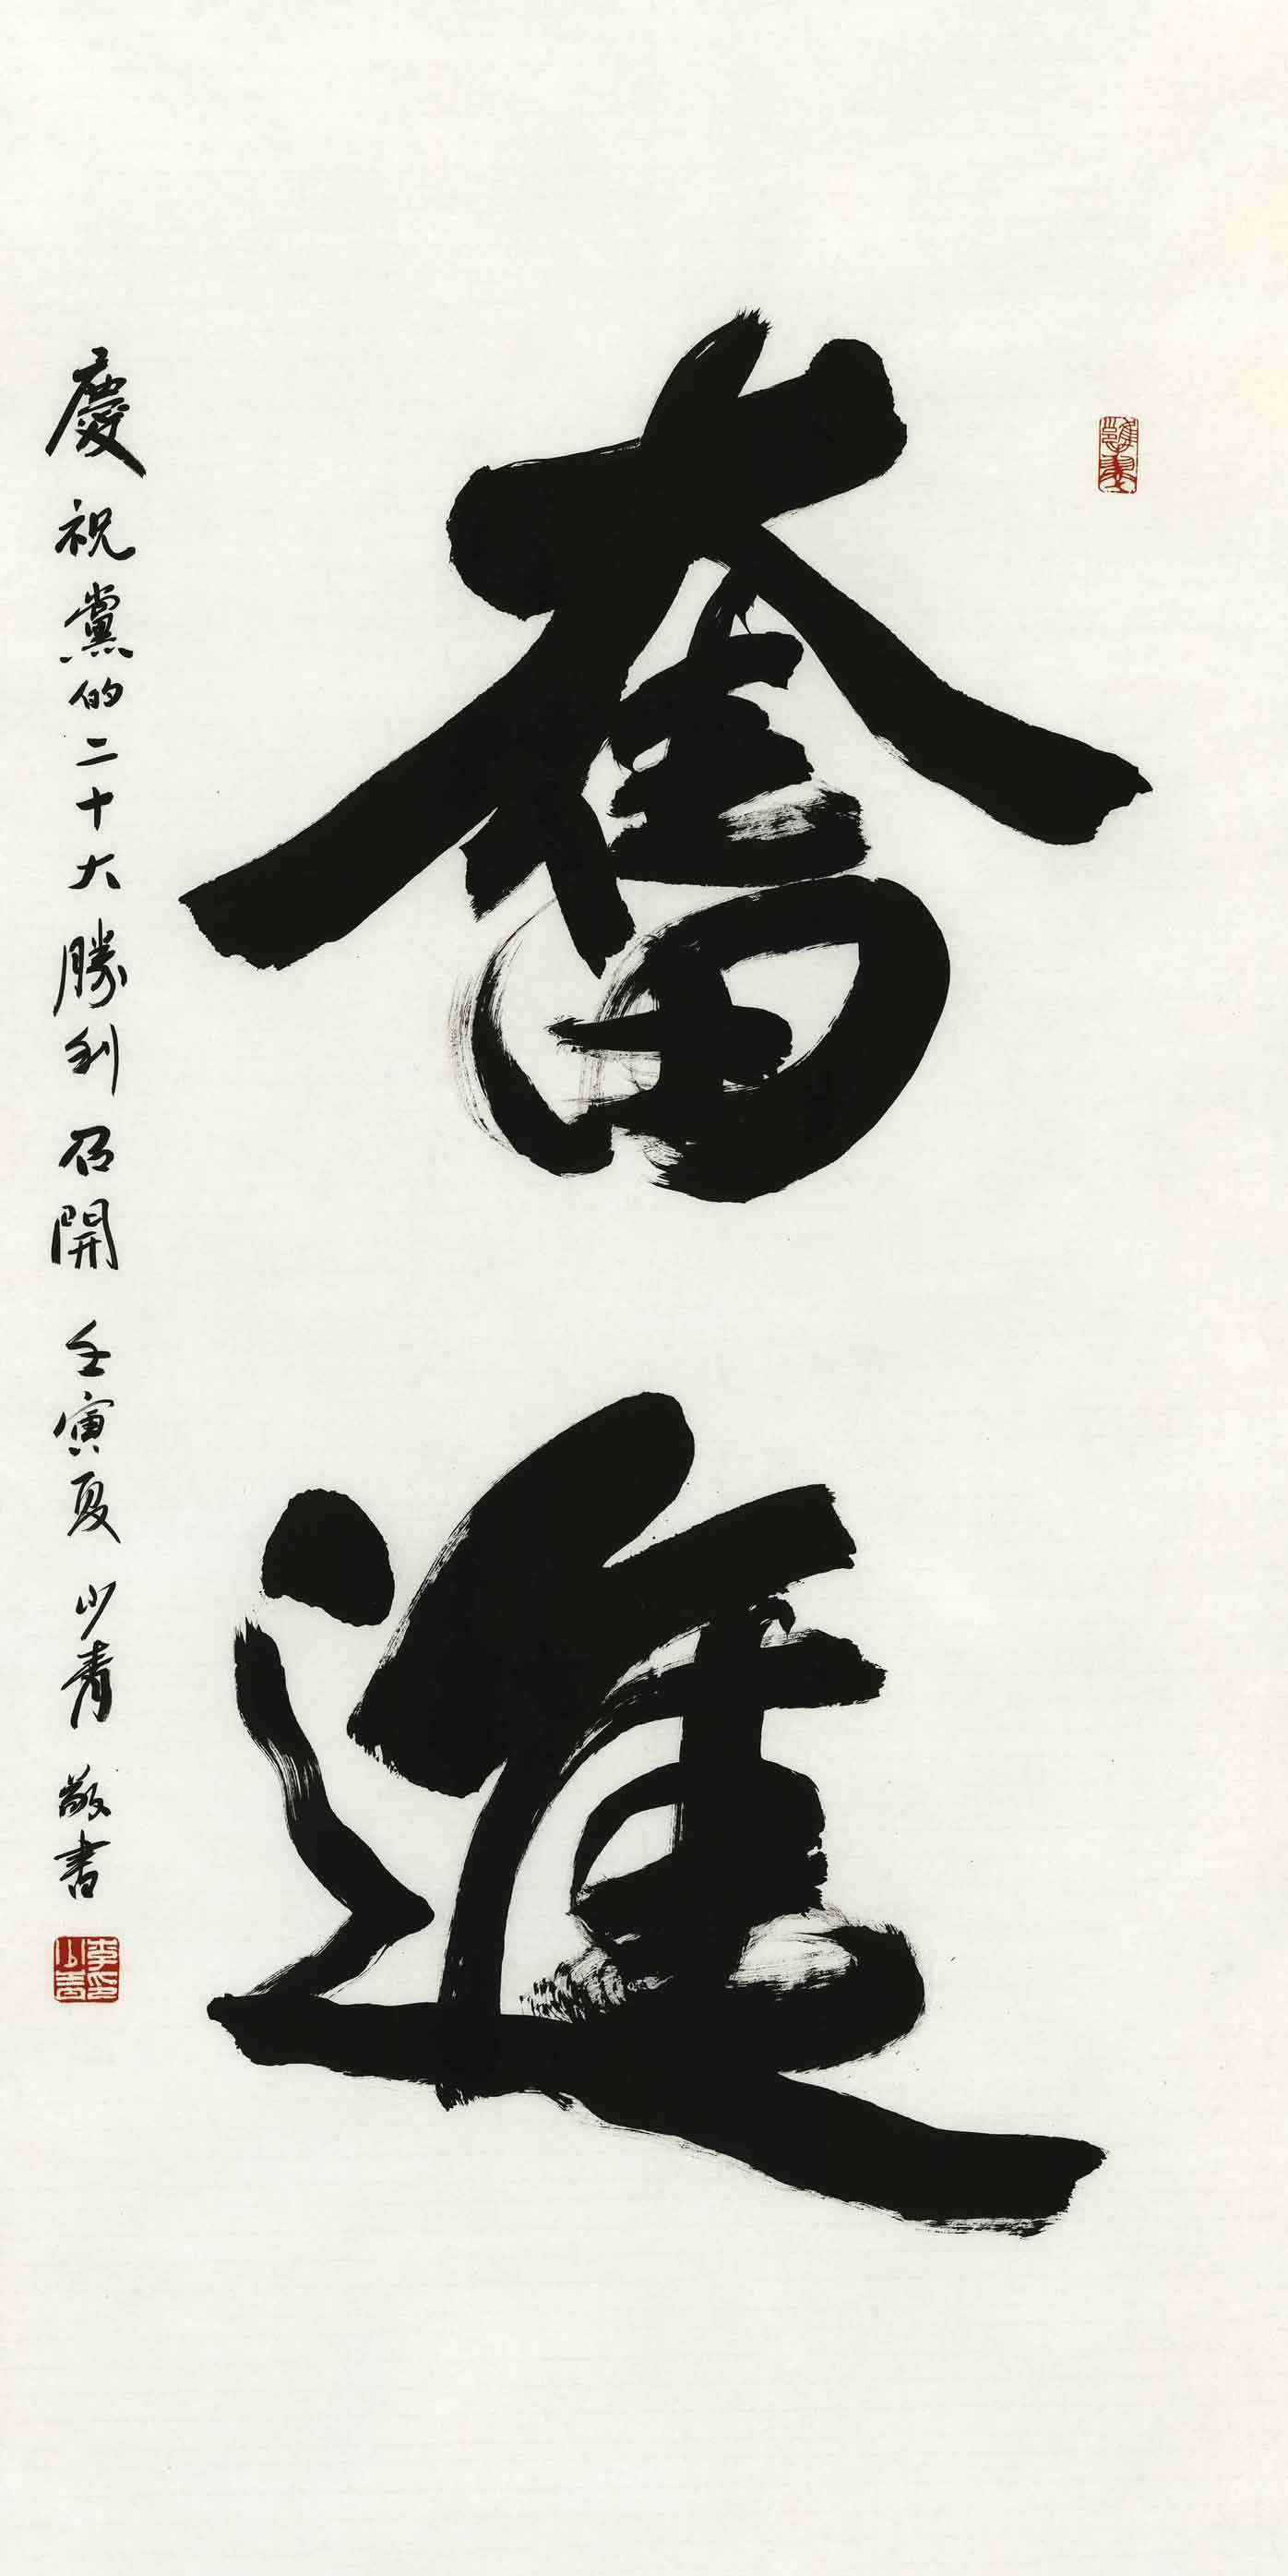 奮進
慶祝黨的二十大勝利召開 壬寅夏 少青 敬書
李少青印